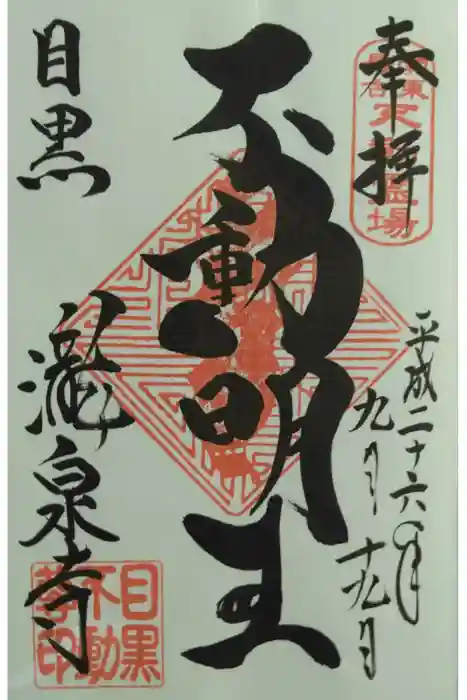 奉拝
平成二十六年
九月十九日
不動明王
目黒
瀧泉寺
目黒
不動